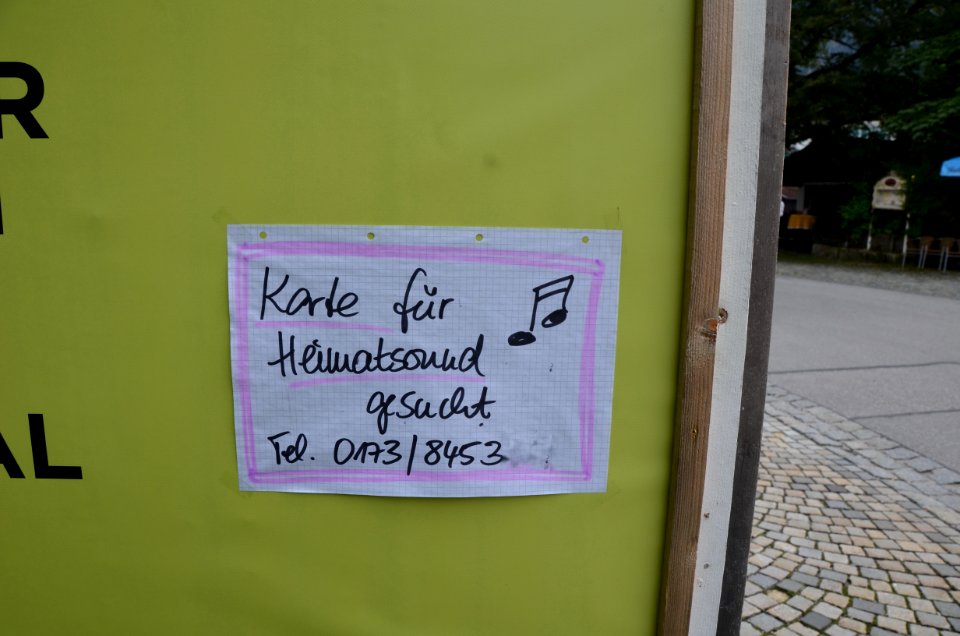 R
Karte für
Heimatsound
gesucht
Tel. 0173/8453
AL